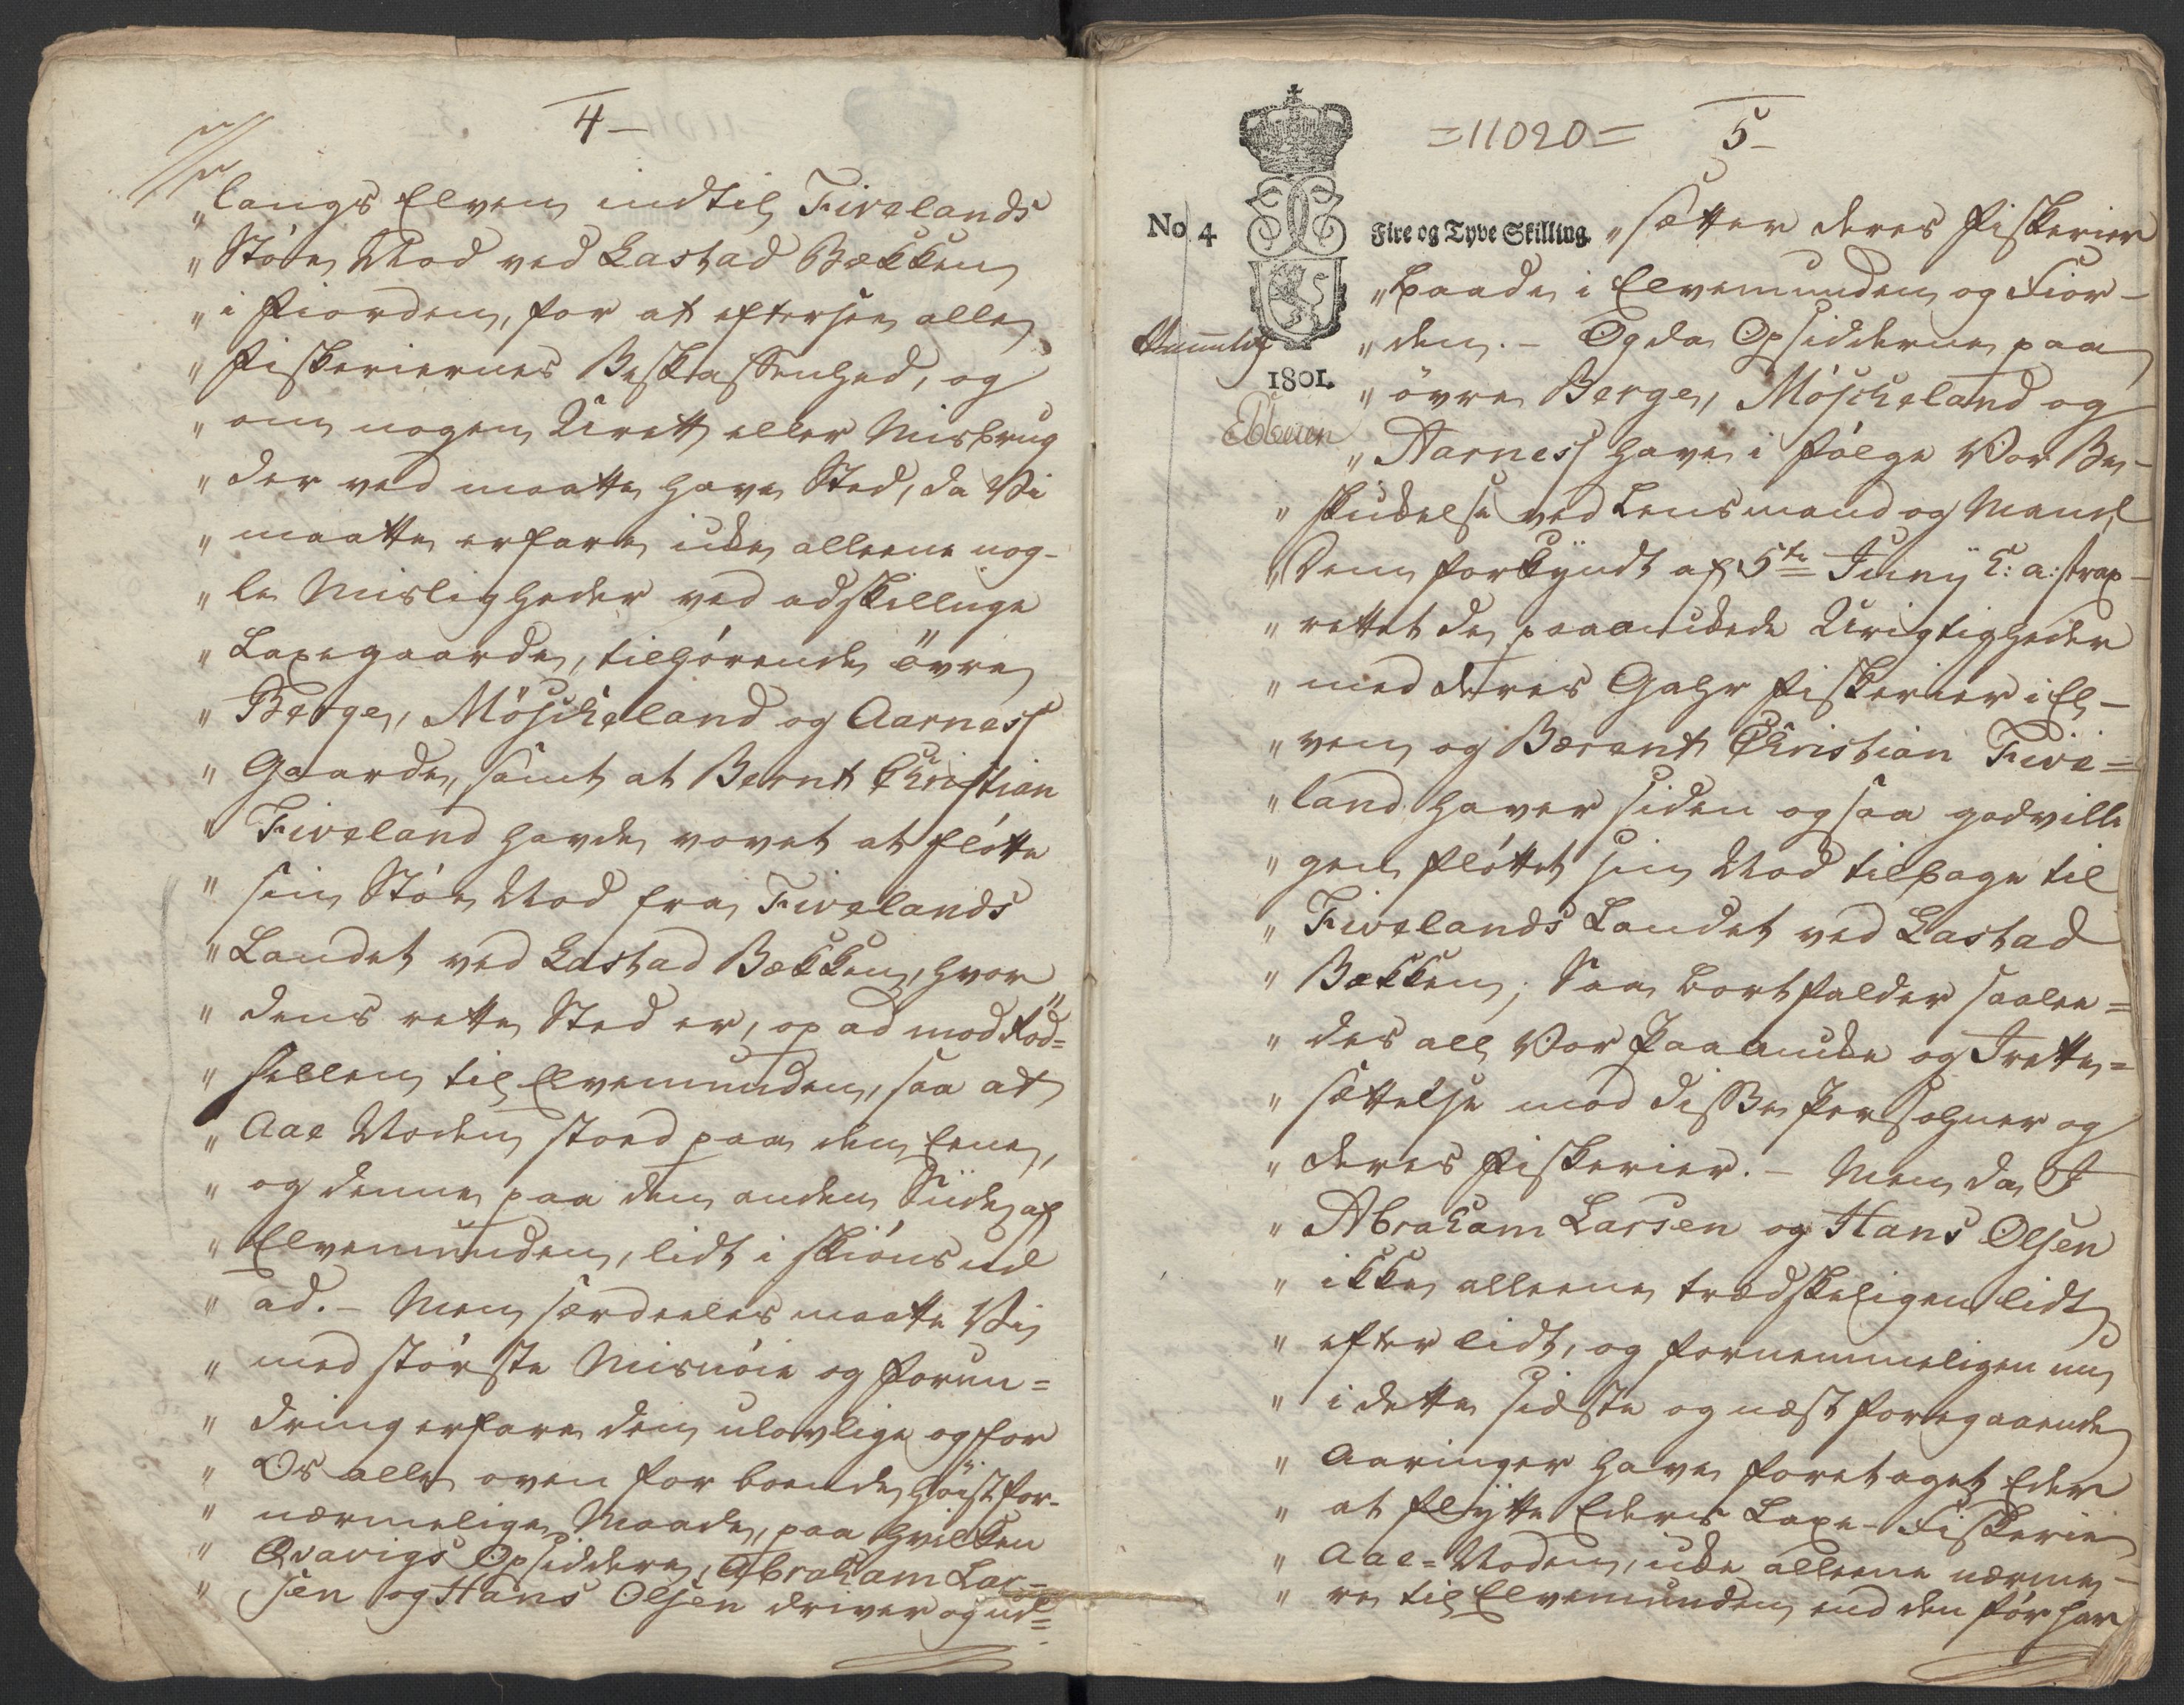 4
„langs Elven indtil Fivelands
„Støe, Vod ved Lastad Bækken
„i Fiorden, for at eftersee alle
„Fiskeriernes Beskaffenhed, og
„om nogen Urett eller Misbrug
„der ved maatte have Sted, da Vi
„maatte erfare ikke alleene nog-
„le Misligheder ved adskillige
„Laxegaarde, tilhørende övre
„Berge, Möscheland og Aarness
„Gaarde, samt at Bernt Christian
„Fiveland havde vovet at fløtte
„sin Støe Vod fra Fivelands
„Landet ved Lastad Bækken, hvor
„dens rette Sted er, op ad mod
„til Elvemunden, saa at
„Aae Voden stoed paa den Eene,
„og denne paa den anden Siide af
„Elvemunden, lidt i skiøns ud
„ad. – Men særdeeles maatte Vi
„med største Misnøie og Forun=
„dring erfare den ulovlige og for
„Os alle oven for boende høist for-
„nærmelige Maade, paa hvilken
„Qvavigs Opsiddere, Abraham Lar=
„sen og Hans Olsen driver og ud=
=11020= 5
No 4 Fire og Tyve Skilling.
1801.
„sætter deres Fiskerier
„baade i Elvemunden og Fior-
„den. – Og da Opsidderne paa
„övre Berge, Möscheland og
„Aarness have i følge Vor Be-
„skikkelse ved Lensmand og Mænd
„Dem forkyndt af 5te Juny h: a: strax
„rettet de paaankede Urigtigheder
„med deres Fiskerier i El-
„ven og Berent Christian Five=
„land haver siden ogsaa godvilli
„gen fløttet sin Vod tilbage til
„Fivelands Landet ved Lastad
„Bækken; Saa bortfalder saalee=
„des all Vor Paaanke og Irette=
„sættelse mod disse Persohner og
„deres Fiskerier. – Men da I
„Abraham Larsen og Hans Olsen
„ikke alleene trædskeligen lidt
„efter lidt, og fornemmeligen nu
„i dette sidste og næst foregaaende
„Aaringer have foretaget Eder
„at flytte Eders Laxe-Fiskerie
„Aae=Voden, ikke alleene nærme-
„re til Elvemunden end den før har